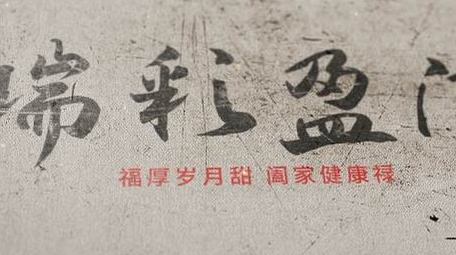 瑞彩盈
福厚岁月甜 阖家健康禄